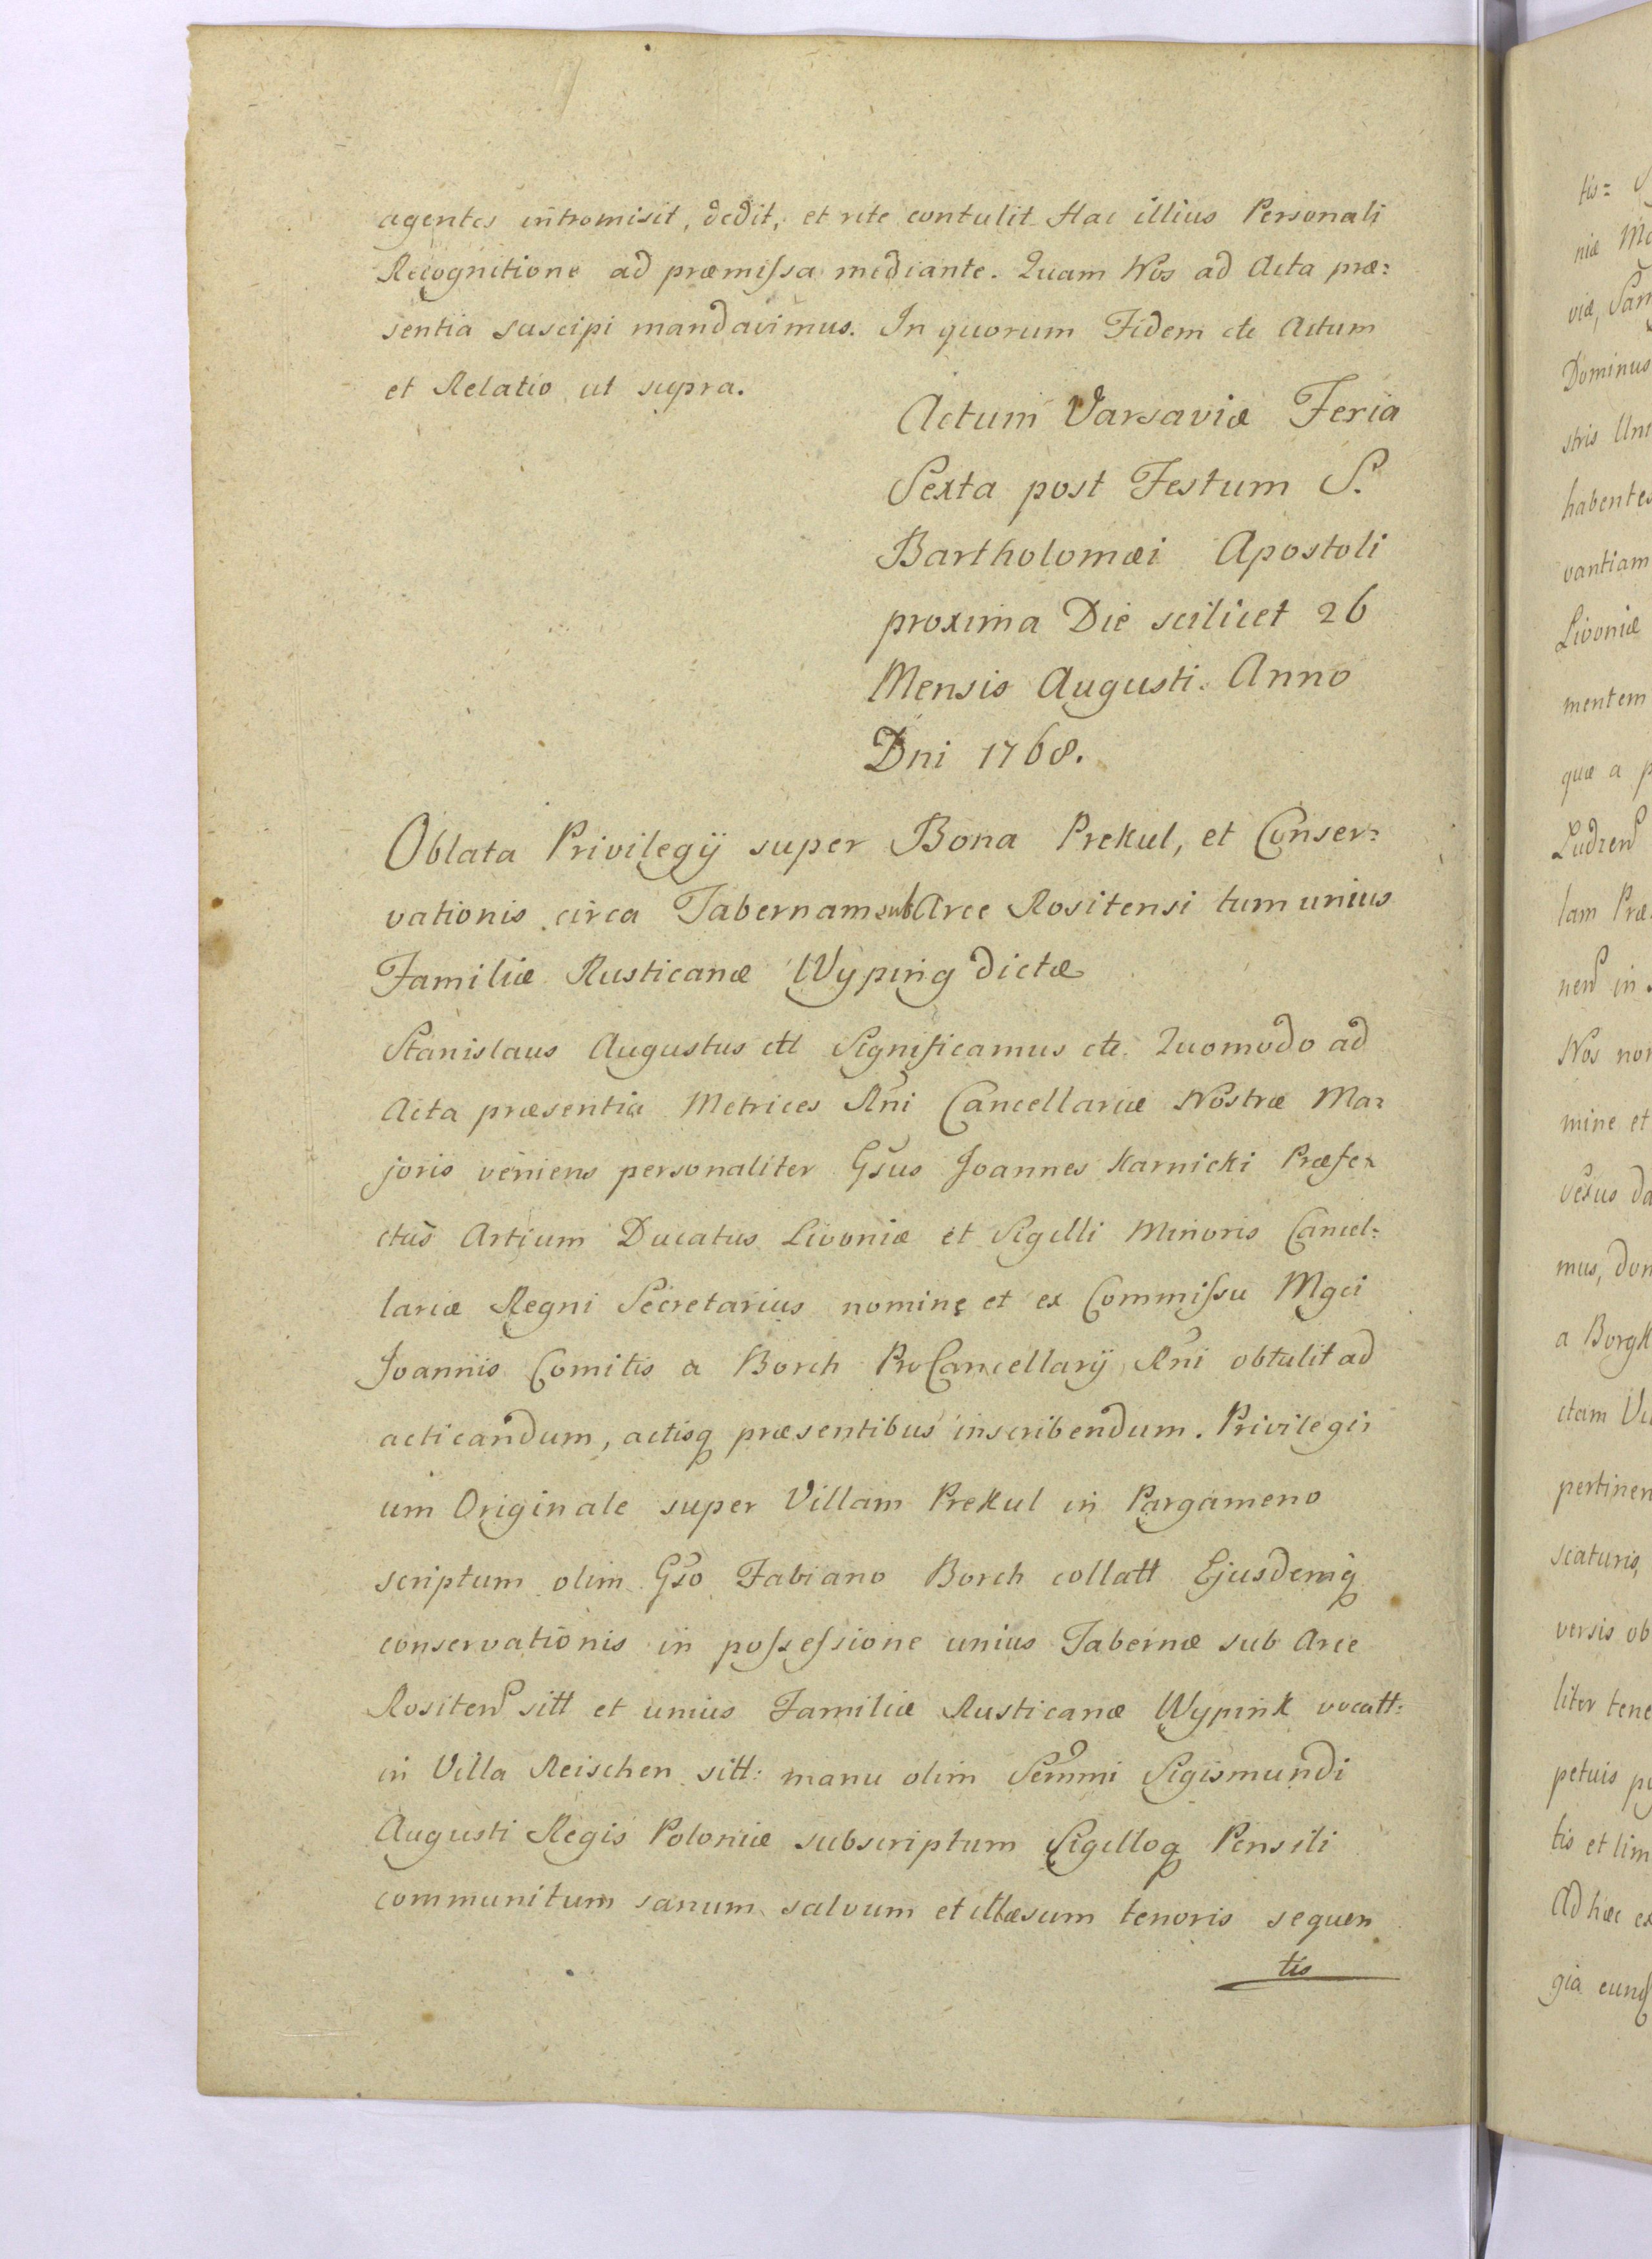 agentes intromisit, dedit, et rite contulit Hac illius Personali
Recognitione ad præmissa mediante. Quam Nos ad Acta præ=
sentia suscipi mandavimus. In quorum Fidem etc Actum
et Relatio ut supra.
Actum Varsaviæ Feria
Sexta post Festum S.
Bartholomæi Apostoli
proxima Die scilicet 26
Mensis Augusti. Anno
Dni 1768.
Oblata Privilegij super Bona Prekul, et Conser=
vationis circa Tabernam sub Arce Rositensi tum unius
Familiæ Rusticanæ Wyping dictæ
Stanislaus Augustus ett Significamus etc. Quomodo ad
Acta præsentia Metrices Rni Cancellariæ Nostræ Ma=
joris veniens personaliter Gsus Joannes Karnicki Præfe=
ctus Artium Ducatus Livoniæ et Sigilli Minoris Cancel=
lariæ Regni Secretarius nomine et ex Commissu Mgci
Joannis Comitis a Borch ProCancellarij Rni obtulit ad
acticandum, actisq præsentibus inscribendum. Privilegi=
um Originale super Villam Prekul in Pargameno
scriptum olim Gso Fabiano Borch collatt Ejusdemq
conservationis in possessione unius Tabernæ sub Arce
Rositen sitt et unius Familiæ Rusticanæ Wypink vocatt:
in Villa Reischen sitt: manu olim Semmi Sigismundi
Augusti Regis Poloniæ subscriptum Sigilloq Pensili
communitum sanum salvum et illæsum tenoris sequen
tis
tis=
niæ
viæ,
Dominus
stris
habentes
vantiam
Livoniæ
mentem
quæ a
Ludzen
lam
nen in
Nos
mine et
mus,
a Borgk
ctam
pertinen
scaturis,
versis ob
liter tene
petuis
tis et lim
Ad hæc
gia